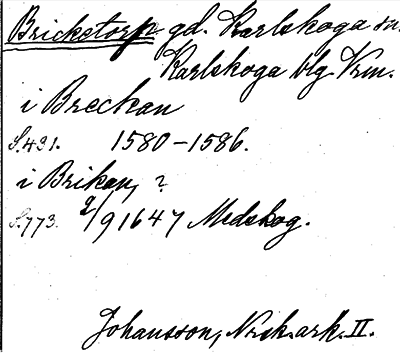 Brickstorp gd. Karlskoga sn.
Karlskoga blg Vrm.
i Breckan
S.421. 1580-1586.
i Brikan, ?
S.773. 2/9 1647 Medskog.
Johansson, Nrik.ark. II.